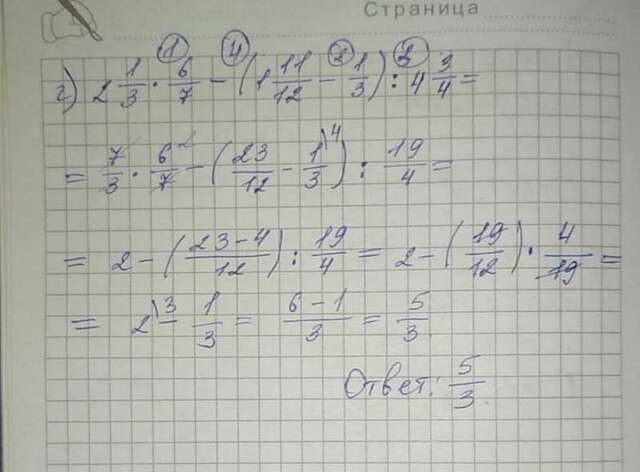 Страница
① ④ ② ③
г) 2 1/3 · 6/7 − (1 11/12 − 1/3) : 4 3/4 =
= 7/3 · 6/7 ² − (23/12 − 1/3 ⁾⁴) : 19/4 =
= 2 − (23−4/12) : 19/4 = 2 − (19/12) · 4/19 =
= 2 ⁾³ − 1/3 = 6−1/3 = 5/3
Ответ: 5/3.